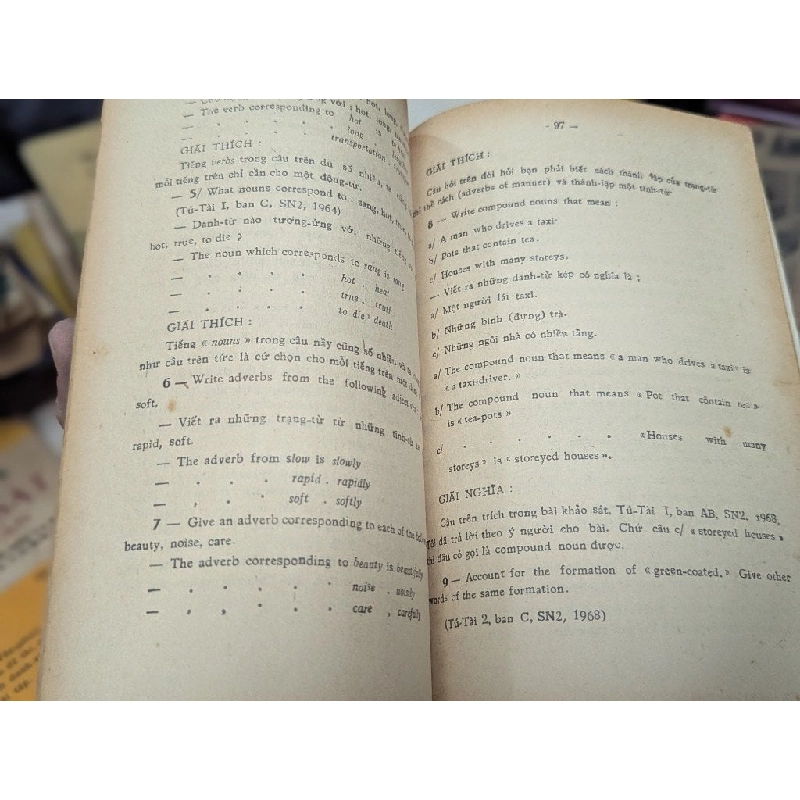 — The verb corresponding to hot is
— . . . long .
— . . . transportation .
GIẢI THÍCH :
Tiếng verbs trong câu trên dù số nhiều,
mỗi tiếng trên chỉ cần cho một động-từ.
— 5/ What nouns correspond to sang, hot, true,
(Tú-Tài I, ban C, SN2, 1964)
— Danh-từ nào tương-ứng với những
hot, true, to die ?
— The noun which corresponds to rang is
— . . . hot . heat
— . . . true . truth
— to die » death
GIẢI THÍCH :
Tiếng « nouns » trong câu này cũng kể nhiều
như câu trên tức là cứ chọn cho mỗi tiếng trên một
6 — Write adverbs from the following
soft.
— Viết ra những trạng-từ từ những tính-từ
rapid, soft.
— The adverb from slow is slowly
— . . . rapid . rapidly
— , . . soft . softly
7 — Give an adverb corresponding to each of the
beauty, noise, care.
— The adverb corresponding to beauty is
— . . . . noise .
— . , . . care , carefully
- 97 —
GIẢI THÍCH :
Câu hỏi trên đòi hỏi bạn phải biết cách thành lập của trạng-từ
chỉ thể cách (adverbs of manner) và thành-lập một tính-từ
8 — Write compound nouns that mean :
a/ A man who drives a taxi.
b/ Pots that contain tea.
c/ Houses with many storeys.
— Viết ra những danh-từ kép có nghĩa là ;
a/ Một người lái taxi.
b/ Những bình (đựng) trà.
c/ Những ngôi nhà có nhiều tầng.
a/ The compound noun that means « a man who drives a taxi » is
« a taxi-driver. »
b/ The compound noun that means « Pot that contain tea »
is « tea-pots »
c/ . . . . . « Houses with many
storeys » is « storeyed houses ».
GIẢI NGHĨA :
Câu trên trích trong bài khảo sát. Tú-Tài I, ban AB, SN2, 1968.
đã trả lời theo ý người cho bài. Chứ câu c/ « storeyed houses »
đâu có gọi là compound noun được.
9 — Account for the formation of « green-coated. » Give other
words of the same formation.
(Tú-Tài 2, ban C, SN2, 1968)